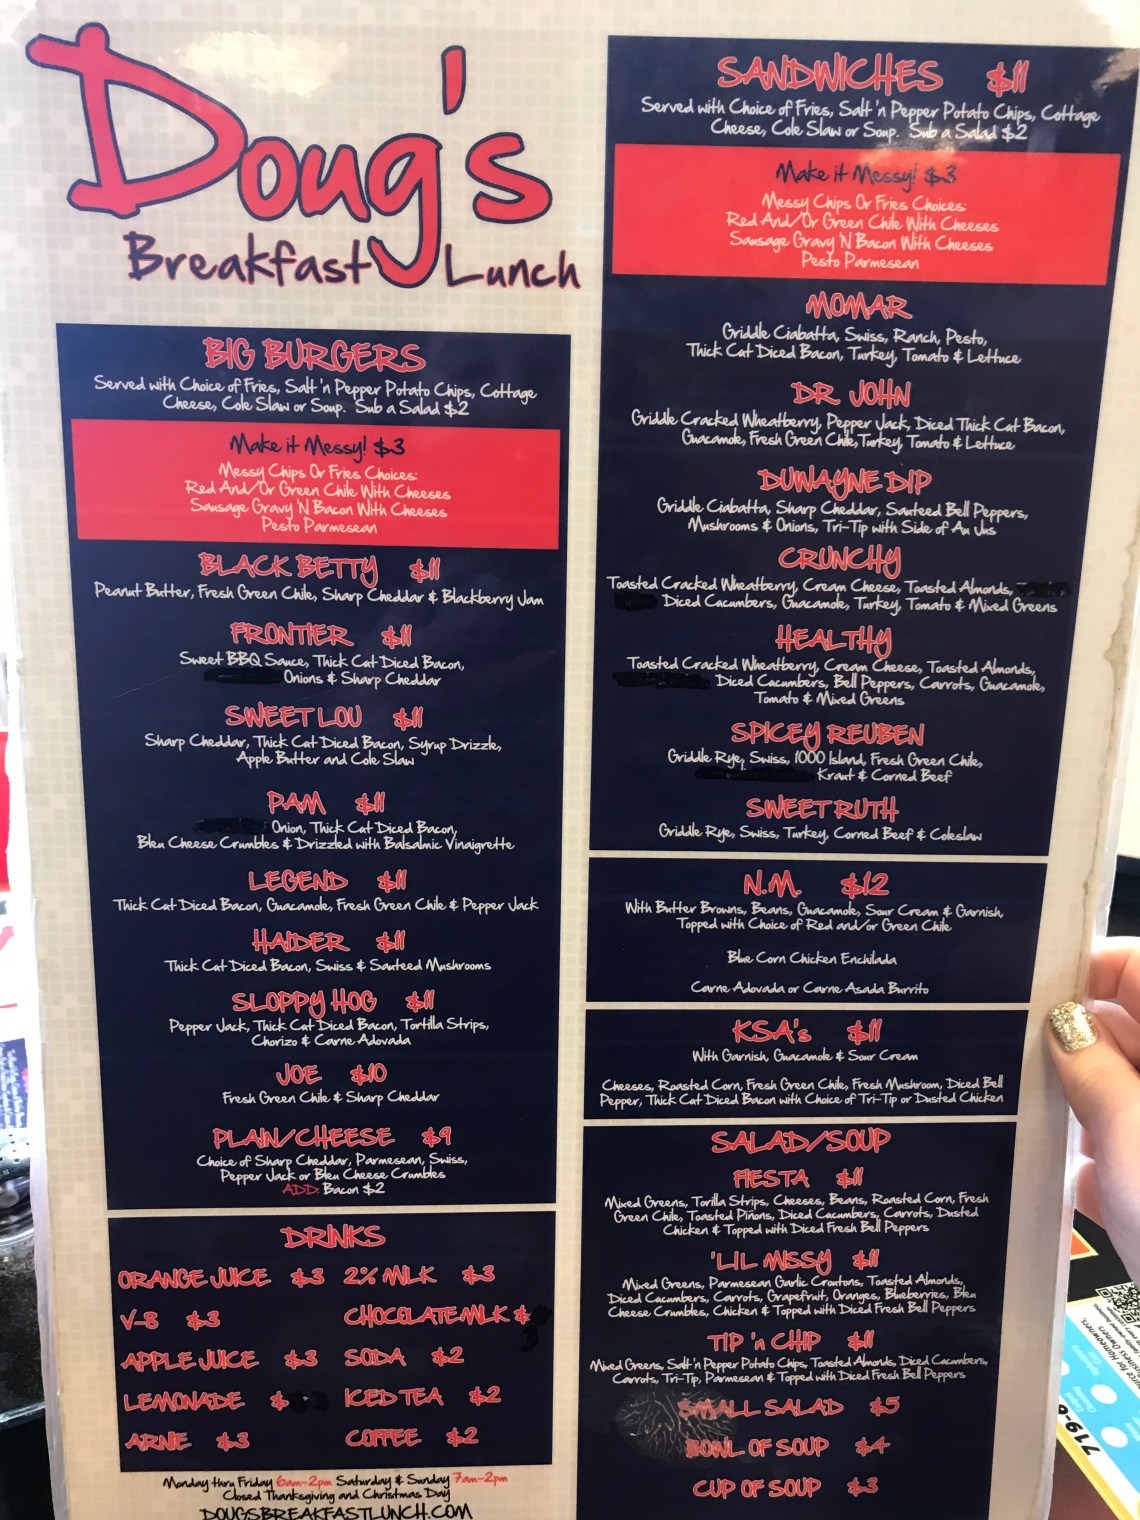 Doug's
Breakfast Lunch
BIG BURGERS
Served with Choice of Fries, Salt 'n Pepper Potato Chips, Cottage
Cheese, Cole Slaw or Soup. Sub a Salad $2
Make it Messy! $3
Messy Chips Or Fries Choices:
Red And/Or Green Chile With Cheeses
Sausage Gravy 'N Bacon With Cheeses
Pesto Parmesean
BLACK BETTY $11
Peanut Butter, Fresh Green Chile, Sharp Cheddar & Blackberry Jam
FRONTIER $11
Sweet BBQ Sauce, Thick Cut Diced Bacon,
Onions & Sharp Cheddar
SWEET LOU $11
Sharp Cheddar, Thick Cut Diced Bacon, Syrup Drizzle,
Apple Butter and Cole Slaw
PAM $11
Onion, Thick Cut Diced Bacon,
Bleu Cheese Crumbles & Drizzled with Balsalmic Vinaigrette
LEGEND $11
Thick Cut Diced Bacon, Guacamole, Fresh Green Chile & Pepper Jack
HAIDER $11
Thick Cut Diced Bacon, Swiss & Sauteed Mushrooms
SLOPPY HOG $11
Pepper Jack, Thick Cut Diced Bacon, Tortilla Strips,
Chorizo & Carne Adovada
JOE $10
Fresh Green Chile & Sharp Cheddar
PLAIN/CHEESE $9
Choice of Sharp Cheddar, Parmesean, Swiss,
Pepper Jack or Bleu Cheese Crumbles
ADD: Bacon $2
DRINKS
ORANGE JUICE $3 2% MILK $3
V-8 $3 CHOCOLATE MILK $
APPLE JUICE $3 SODA $2
LEMONADE $3 ICED TEA $2
ARNIE $3 COFFEE $2
Monday thru Friday 6am-2pm Saturday & Sunday 7am-2pm
Closed Thanksgiving and Christmas Day
DOUGSBREAKFASTLUNCH.COM
SANDWICHES $11
Served with Choice of Fries, Salt 'n Pepper Potato Chips, Cottage
Cheese, Cole Slaw or Soup. Sub a Salad $2
Make it Messy! $3
Messy Chips Or Fries Choices:
Red And/Or Green Chile With Cheeses
Sausage Gravy 'N Bacon With Cheeses
Pesto Parmesean
MOMAR
Griddle Ciabatta, Swiss, Ranch, Pesto,
Thick Cut Diced Bacon, Turkey, Tomato & Lettuce
DR JOHN
Griddle Cracked Wheatberry, Pepper Jack, Diced Thick Cut Bacon,
Guacamole, Fresh Green Chile, Turkey, Tomato & Lettuce
DUWAYNE DIP
Griddle Ciabatta, Sharp Cheddar, Sauteed Bell Peppers,
Mushrooms & Onions, Tri-Tip with Side of Au Jus
CRUNCHY
Toasted Cracked Wheatberry, Cream Cheese, Toasted Almonds,
Diced Cucumbers, Guacamole, Turkey, Tomato & Mixed Greens
HEALTHY
Toasted Cracked Wheatberry, Cream Cheese, Toasted Almonds,
Diced Cucumbers, Bell Peppers, Carrots, Guacamole,
Tomato & Mixed Greens
SPICEY REUBEN
Griddle Rye, Swiss, 1000 Island, Fresh Green Chile,
Kraut & Corned Beef
SWEET RUTH
Griddle Rye, Swiss, Turkey, Corned Beef & Coleslaw
N.M. $12
With Butter Browns, Beans, Guacamole, Sour Cream & Garnish,
Topped with Choice of Red and/or Green Chile
Blue Corn Chicken Enchilada
Carne Adovada or Carne Asada Burrito
KSA's $11
With Garnish, Guacamole & Sour Cream
Cheeses, Roasted Corn, Fresh Green Chile, Fresh Mushroom, Diced Bell
Pepper, Thick Cut Diced Bacon with Choice of Tri-Tip or Dusted Chicken
SALAD/SOUP
FIESTA $11
Mixed Greens, Torilla Strips, Cheeses, Beans, Roasted Corn, Fresh
Green Chile, Toasted Piñons, Diced Cucumbers, Carrots, Dusted
Chicken & Topped with Diced Fresh Bell Peppers
'LIL MISSY $11
Mixed Greens, Parmesean Garlic Croutons, Toasted Almonds,
Diced Cucumbers, Carrots, Grapefruit, Oranges, Blueberries, Bleu
Cheese Crumbles, Chicken & Topped with Diced Fresh Bell Peppers
TIP 'n CHIP $11
Mixed Greens, Salt 'n Pepper Potato Chips, Toasted Almonds, Diced Cucumbers,
Carrots, Tri-Tip, Parmesean & Topped with Diced Fresh Bell Peppers
SMALL SALAD $5
BOWL OF SOUP $4
CUP OF SOUP $3